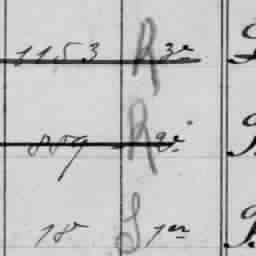 1153 R 3e
889 R 2e
18 S 1er